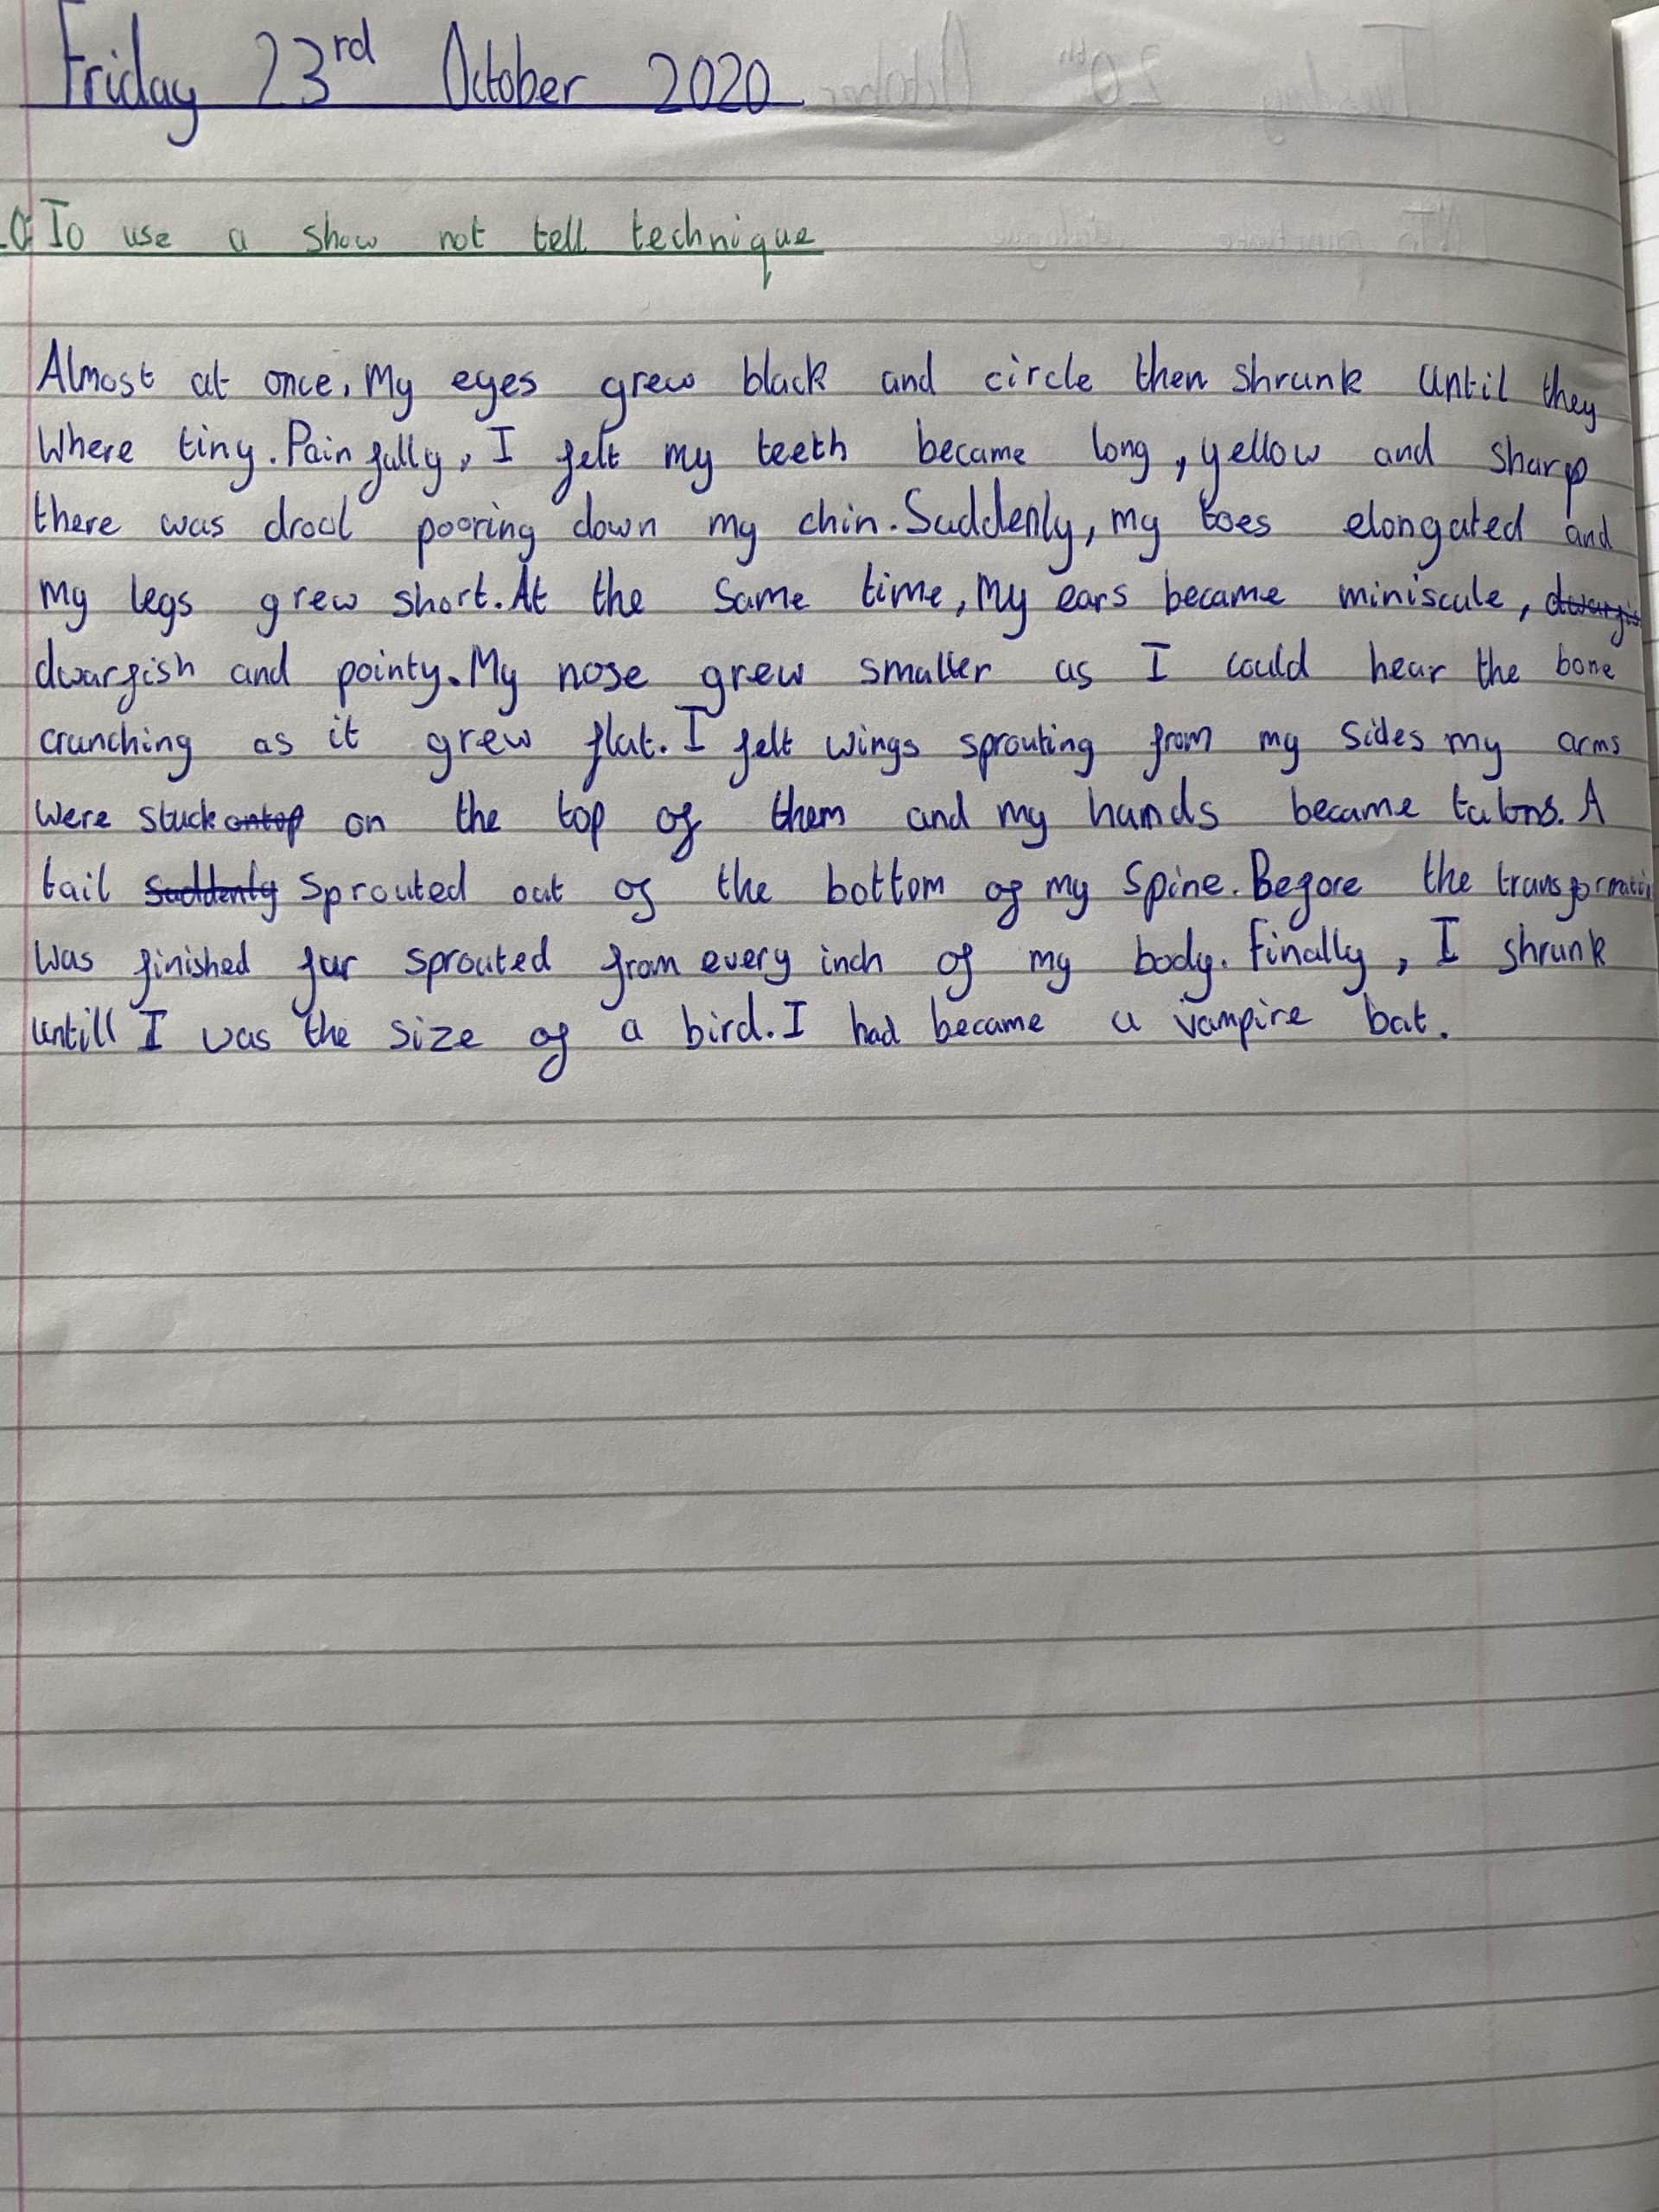 Friday 23rd October 2020
LO: To use a show not tell technique
Almost at once, My eyes grew black and circle then shrunk until they
Where tiny. Painfully, I felt my teeth became long, yellow and sharp
there was drool pooring down my chin. Suddenly, my toes elongated and
my legs grew short. At the same time, My ears became miniscule,
dwarfish and pointy. My nose grew smaller as I could hear the bone
crunching as it grew flat. I felt wings sprouting from my sides my arms
were stuck ontop on the top of them and my hands became talons. A
tail Suddenly sprouted out of the bottom of my spine. Before the transformati
was finished fur sprouted from every inch of my body. Finally, I shrunk
untill I was the size of a bird. I had became a vampire bat.